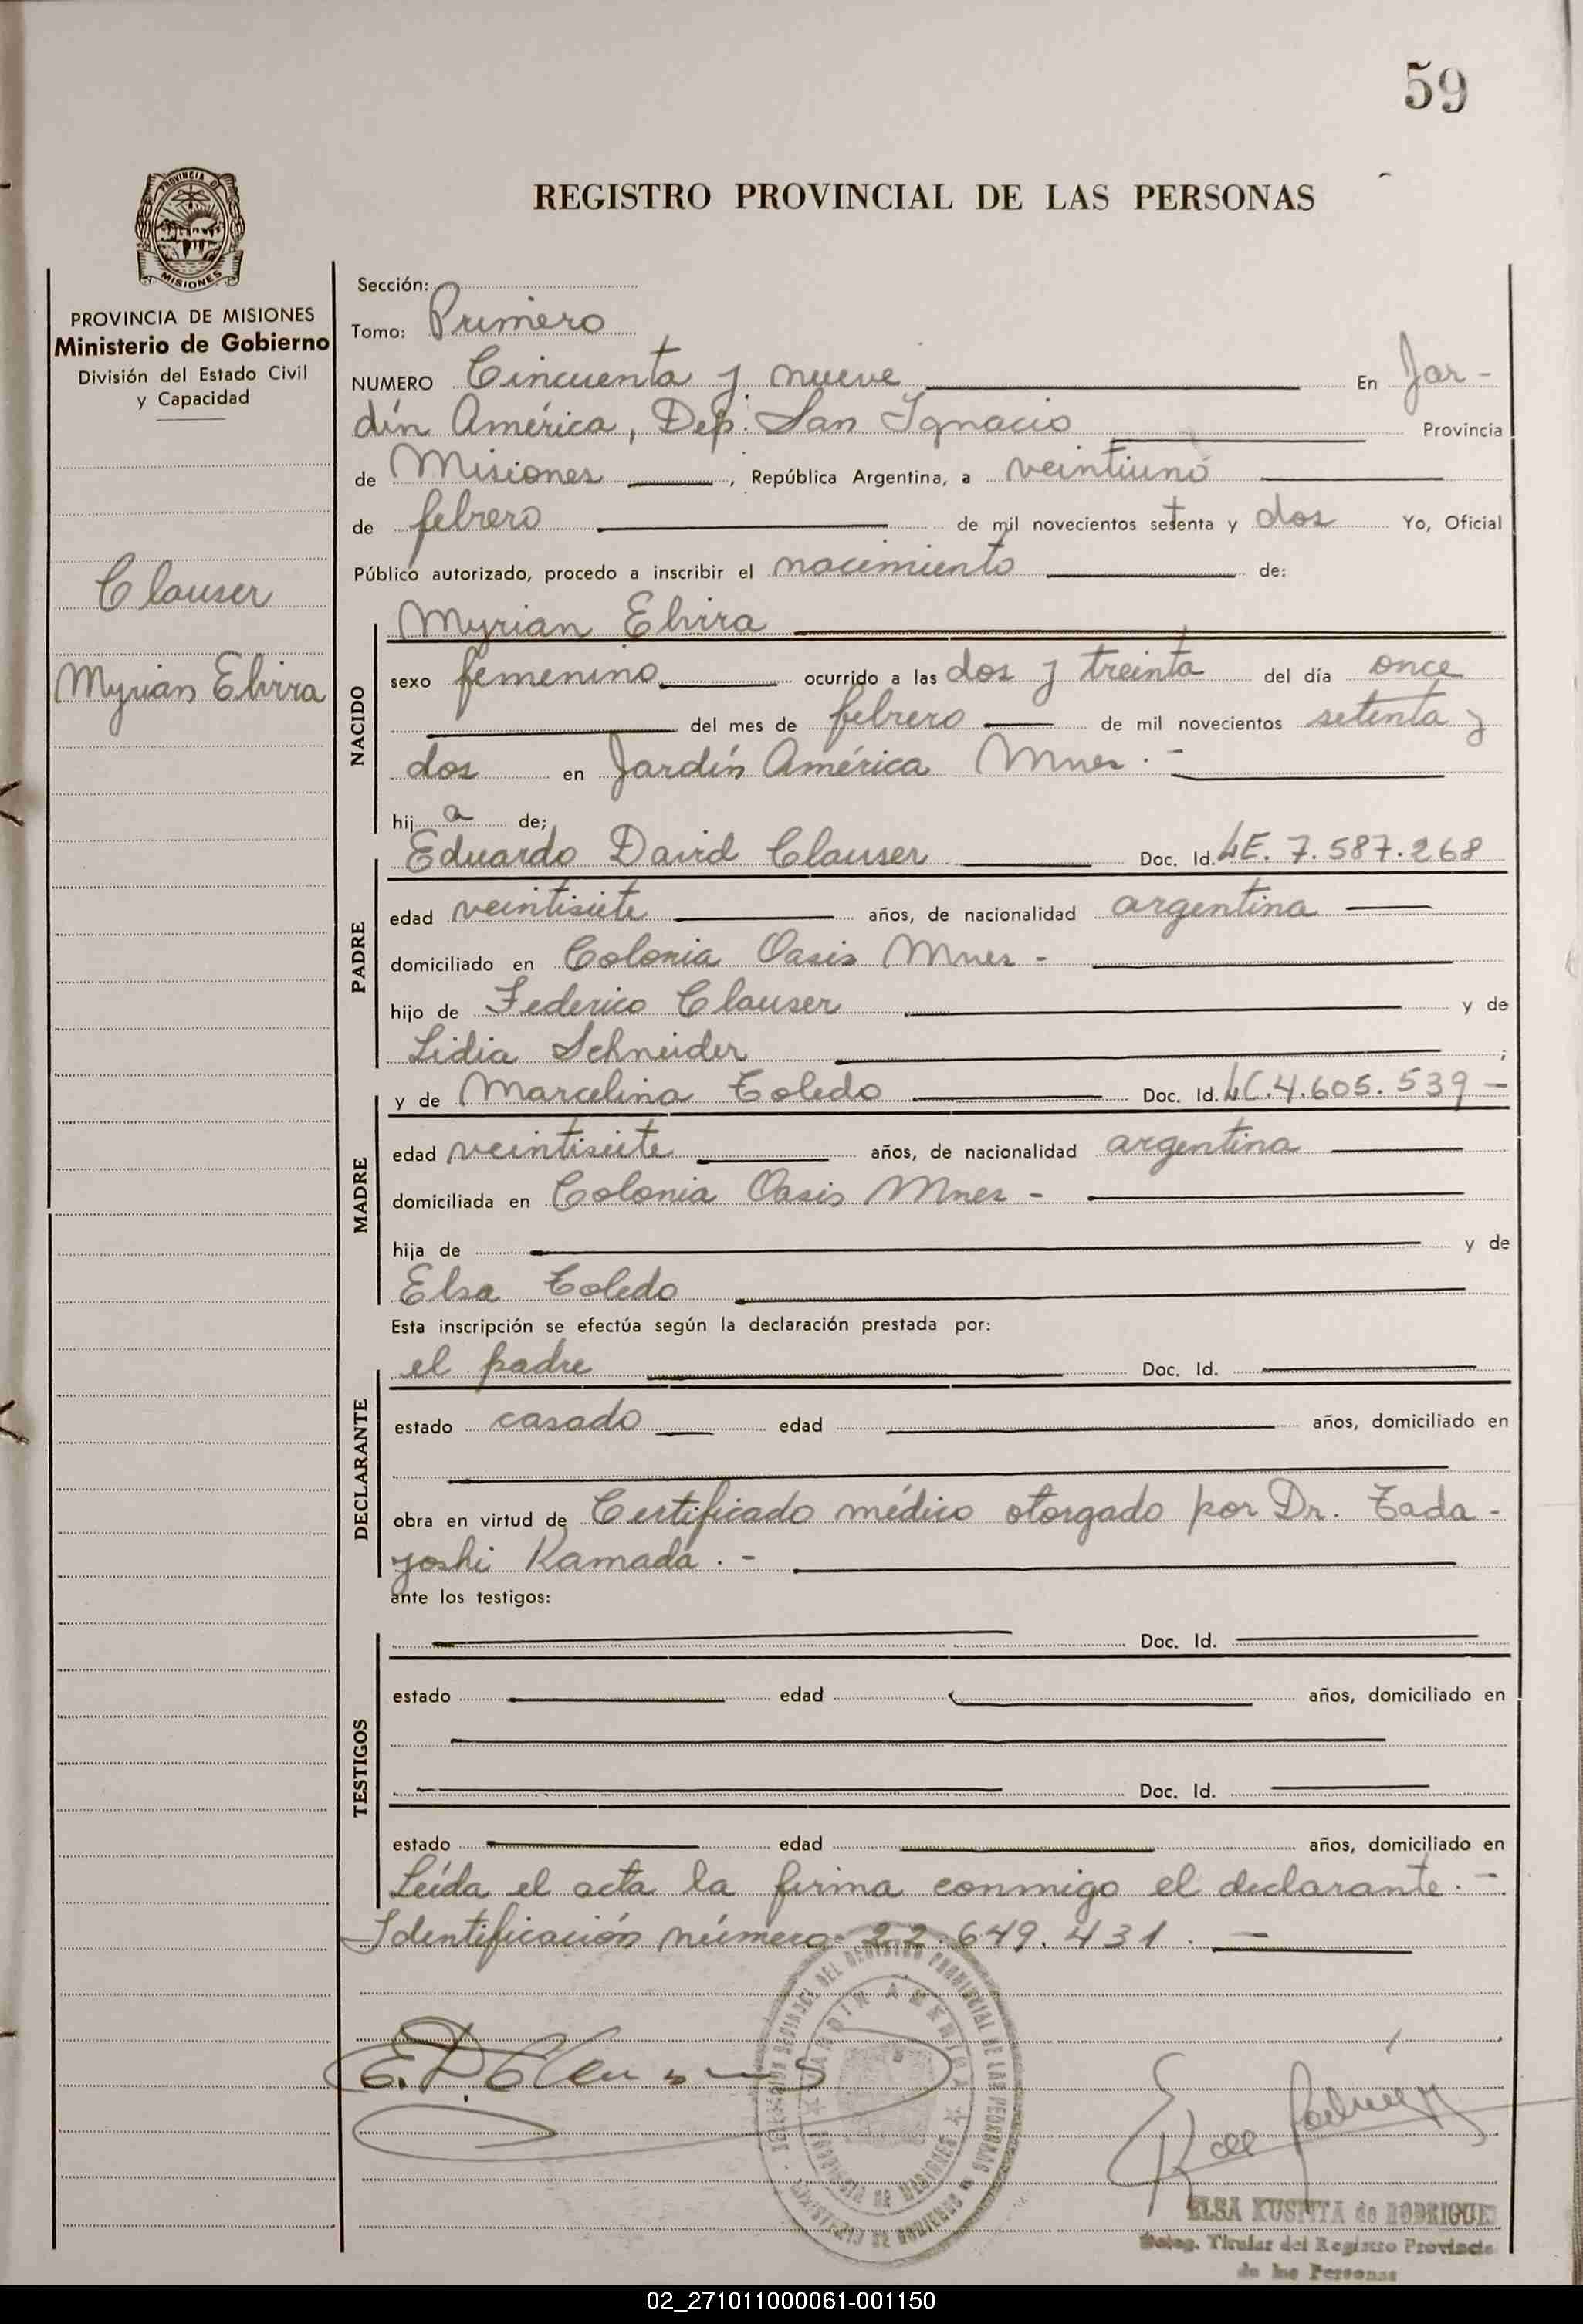 59
PROVINCIA DE
MISIONES
REGISTRO PROVINCIAL DE LAS PERSONAS
PROVINCIA DE MISIONES
Ministerio de Gobierno
División del Estado Civil
y Capacidad
Clauser
Myrian Elvira
Sección:
Tomo: Primero
NUMERO Cincuenta y nueve En Jar-
dín América, Dep. San Ignacio Provincia
de Misiones, República Argentina, a veintiuno
de febrero de mil novecientos setenta y dos Yo, Oficial
Público autorizado, procedo a inscribir el nacimiento de:
NACIDO
Myrian Elvira
sexo femenino ocurrido a las dos y treinta del día once
del mes de febrero de mil novecientos setenta y
dos en Jardín América Mnes.-
hija de;
PADRE
Eduardo David Clauser Doc. Id. LE. 7.587.268
edad veintisiete años, de nacionalidad argentina
domiciliado en Colonia Oasis Mnes -
hijo de Federico Clauser y de
Lidia Schneider ;
MADRE
y de Marcelina Toledo Doc. Id. LC.4.605.539 -
edad veintisiete años, de nacionalidad argentina
domiciliada en Colonia Oasis Mnes -
hija de y de
Elsa Toledo
Esta inscripción se efectúa según la declaración prestada por:
DECLARANTE
el padre Doc. Id.
estado casado edad años, domiciliado en
obra en virtud de Certificado médico otorgado por Dr. Tada-
yoshi Kamada.-
ante los testigos:
TESTIGOS
Doc. Id.
estado edad años, domiciliado en
Doc. Id.
estado edad años, domiciliado en
Leída el acta la firma conmigo el declarante.-
Identificación número: 22.649.431.-
JARDIN AMERICA
PROVINCIA DE MISIONES
DEL REGISTRO PROVINCIAL DE LAS PERSONAS
MINISTERIO DE GOBIERNO
E.D. Clauser
ELSA KUSPITA de RODRIGUE
Deleg. Titular del Registro Provincia
de las Personas
02_271011000061-001150